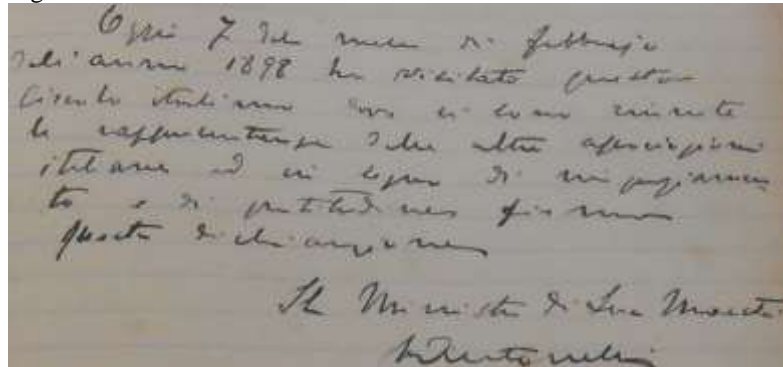 Oggi 7 del mese di febbrajo
dell'anno 1898 ho visitato questo
Circolo italiano dove si sono riunite
le rappresentanze delle altre associazioni
italiane ed in segno di
to e di gratitudine firmo
questa dichiarazione
Il Ministro di Sua Maestà
Antonelli